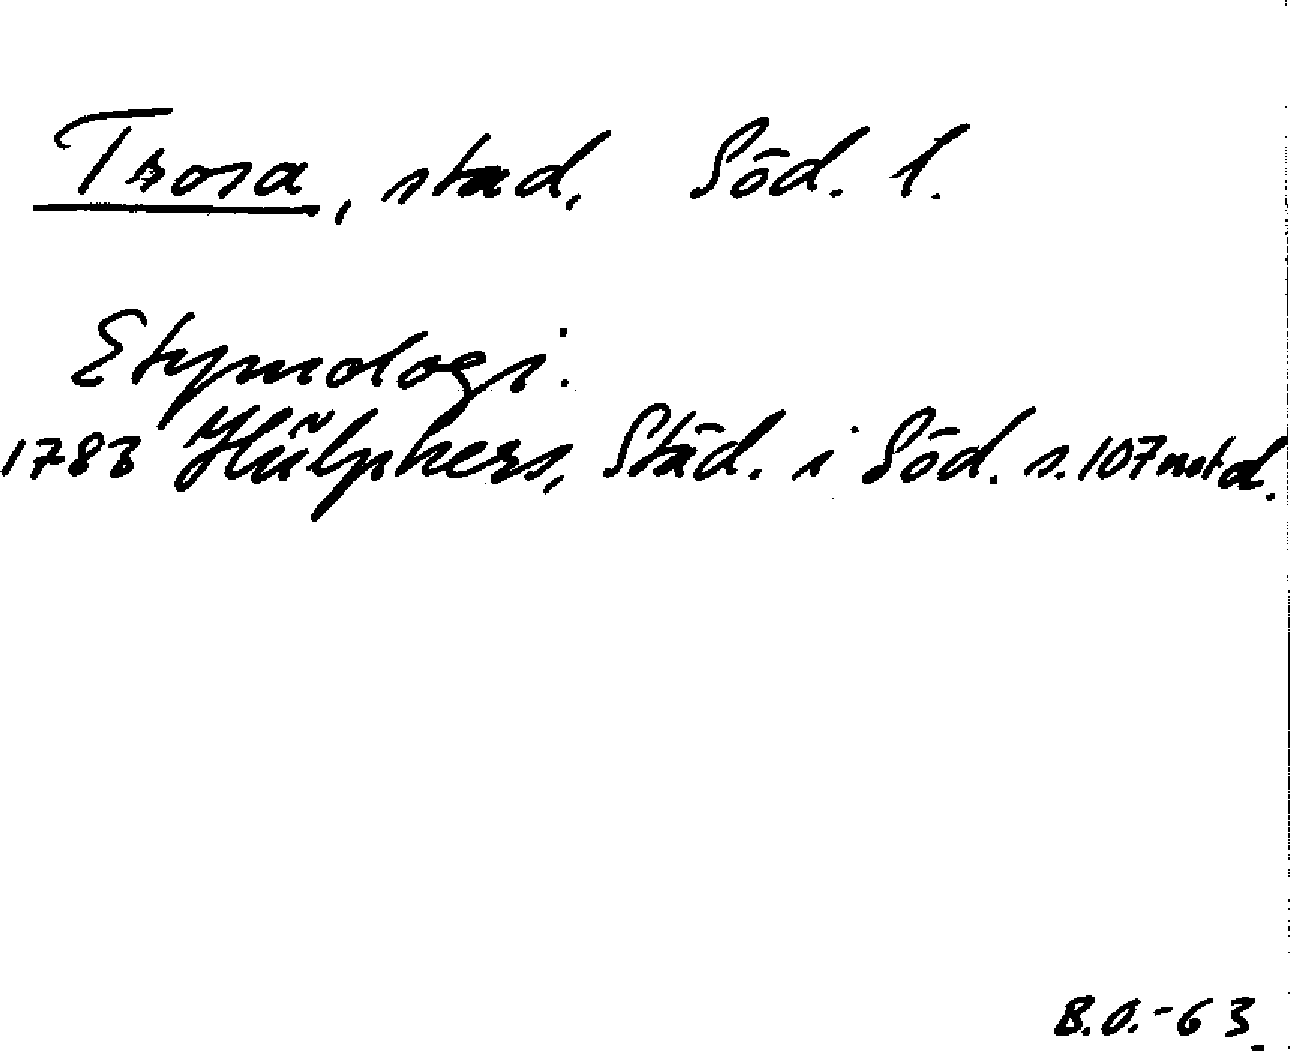 Trosa, stad, Söd. l.
Etymologi.
1783 Hülphers, Städ. i Söd. s. 107 not d.
B.O.-63